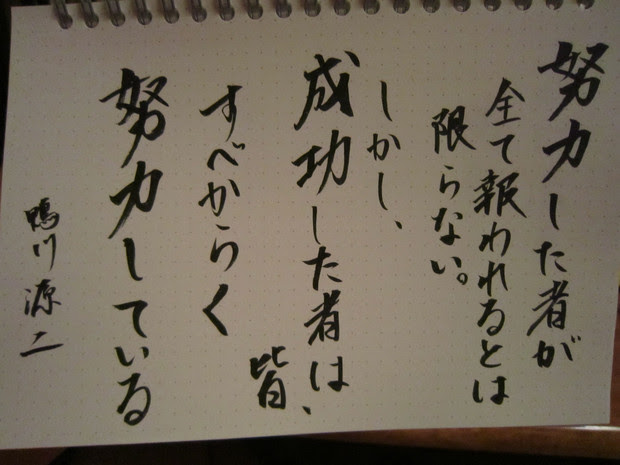 努力した者が
全て報われるとは
限らない。
しかし、
成功した者は、
皆
すべからく
努力している
鴨川源二